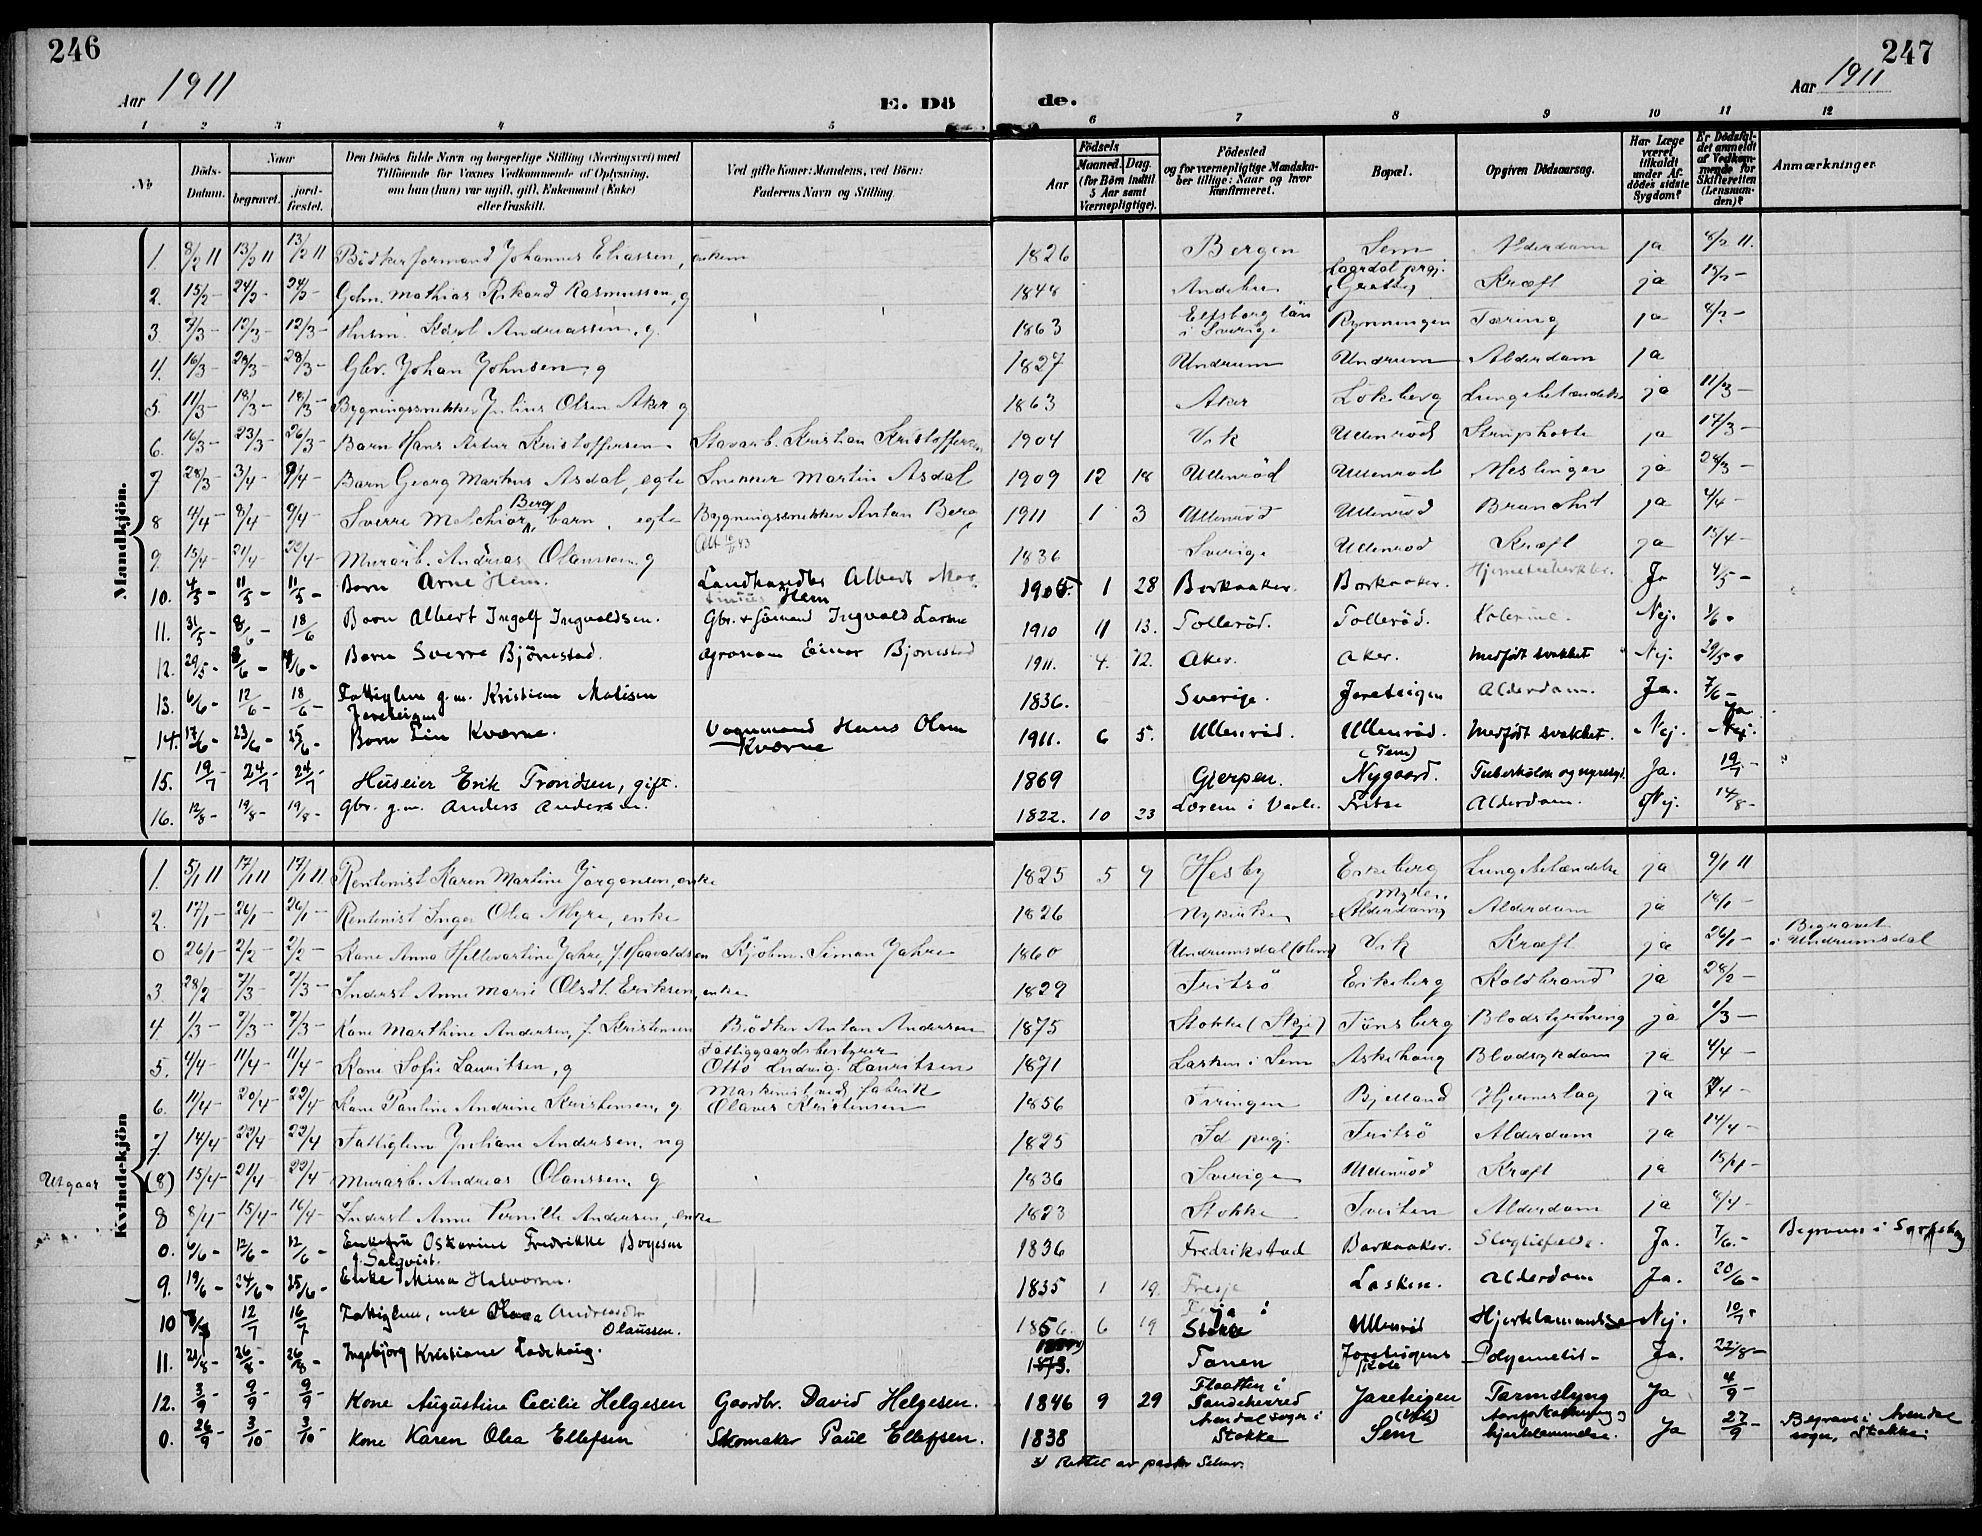 246
247
Aar 1911
E. Dö
de.
Aar 1911
1 2 3 4 5 6 7 8 9 10 11 12
No
Döds-Datum.
Naar begravet. jordfæstet.
Den Dödes fulde Navn og borgerlige Stilling (Næringsvei) med Tilföiende för Voxnes Vedkommende af Oplysning, om han (hun) var ugift, gift, Enkemand (Enke) eller fraskilt.
Ved gifte Koner: Mandens, ved Börn: Faderens Navn og Stilling.
Födsels Aar Maaned. Dag. (for Börn indtil 5 Aar samt Værnepligtige).
Födested og for værnepligtige Mandskaber tillige: Naar og hvor konfirmeret.
Bopæl.
Opgiven Dödsaarsag.
Har Læge været tilkaldt under Afdödes sidste Sygdom?
Er Dödsfaldet anmeldt af Vedkommende for Skifteretten (Lensmanden)?
Anmærkninger
Mandkjön.
1. 8/2 11 13/2 11 13/2 11 Bödkerformand Johannes Eliassen, enkem 1826 Bergen Sem Alderdom ja 8/2 11.
2. 15/2 - 24/2 - 24/2 - Gdm. Mathias Rikard Rasmussen, g 1848 Andebu Laardal prgj. Kræft ja 15/2 -
3 7/3 - 12/3 - 12/3 - Husm. Karl Andreassen, g. 1863 Elfsborg län i Sverige Rynningen Tæring ja 8/3 -
4. 16/3 - 28/3 - 28/3 - Gbr. Johan Johnsen, g 1827 Undrum Undrum Alderdom ja
5. 11/3 - 18/3 - 18/3 - Bygningssnekker Julius Olsen Aker g 1863 Aker Lökeberg Lungebetændelse ja 11/3 -
6. 16/3 - 23/3 - 26/3 - Barn Hans Artur Kristoffersen Kristian Kristoffersen 1904 Vik Ullenröd Struphoste ja 17/3 -
7 28/3 - 3/4 - 9/4 - Barn Georg Markus Asdal, egte Snekker Martin Asdal 1909 12 18 Ullenröd Ullenröd Meslinger ja 28/3 -
8 4/4 - 8/4 - 9/4 - Sverre Melchior Berg, barn, egte Bygningssnekker Anton Berg 1911 1 3 Ullenröd Ullenröd Bronchit ja 4/4 -
9. 15/4 - 21/4 - 22/4 - Murarb. Andreas Olaussen, g 1836 Sverige Ullenröd Kræft ja 15/4 -
10. 4/5 - 11/5 - 11/5 - Barn Arne Hem. Landhandler Albert Hem 1905. 1 28 Barkaaker. Barkaaker. Ja 4/5 -
11. 31/5 - 8/6 - 18/6 Barn Albert Ingolf Ingvaldsen. Ingvald 1910 11 13. Tolleröd. Tolleröd. Nej. 1/6 -
12. 29/5 - Barn Sverre Björnstad. agronom Einar Bjornstad 1911. 4. 12. Aker. Aker. Medfödt svakhet Nej. 29/5 -
13. 6/6 - 12/6 - 18/6 - Fattiglem g.m. Kristian Jareteigen 1836. Sverige. Jareteigen Alderdom. Ja. 7/6 -
14. 17/6 - 23/6 - 25/6 - Barn Kværne. Vognmand Hans Olsen Kværne 1911. 6 5. Ullenröd. Ullenröd. Medfödt svakhet. Nej. Nej. Ja
15. 19/7 - 24/7 - 24/7 Huseier Erik Trondsen, gift. 1869 Gjerpen. (Sem) Nygaard. Ja. 19/7 -
16. 12/8 - 19/8 - 19/8 - Gbr. g.m. Anders Andersen. 1822. 10 23 Fritsø Alderdom. Nej. 14/8 -
Kvindekjön
1. 5/1 11 17/1 11 17/1 11 Rentenist Karen Martine Jörgensen, enke 1825 5 9 Hesby Eikeberg Lungebetændelse ja 9/1 11
2. 17/1 - 26/1 - 26/1 - Rentenist Inger Olea Myre, enke 1826 Nykirke Myre. Alderdom ja 18/1 -
0 26/1 - 2/2 - 2/2 - Kone Anna Hellevartine Jahre, f. Haavaldsen Kjöbm. Simon Jahre 1860 Undrumsdal Vik Kræft ja 26/1 - Begravet i Undrumsdal
3 28/2 - 7/3 - 7/3 - Inderst Anne Marie Olsdt. Eriksen, enke 1829 Fritsö Eikeberg Koldbrand ja 28/2 -
4. 1/3 - 7/3 - 7/3 - Kone Marthine Andersen, f. Kristensen Bödker Anton Andersen 1875 Stokke (Skje) Tönsberg Blodstyrtning ja 1/3 -
5. 4/4 - 11/4 - 11/4 - Kone Sofie Lauritsen, g Fattiggaardsbestyrer Otto Ludvig Lauritsen 1871 Lasken i Sem Askehaug Blodsygdom ja 4/4 -
6. 11/4 - 20/4 - 22/4 Kone Pauline Andrine Kristensen, g Maskinist ved fabrik Olaves Kristensen 1856 Bjelland Hjerneslag ja
7 14/4 - 22/4 - 22/4 Fattiglem Juliane Andersen, ug 1825 Id prgj. Fritsö Alderdom ja 14/4 -
Utgaar (8) 15/4 - 21/4 - 22/4 - Murarb. Andreas Olaussen, g 1836 Sverige Ullenröd Kræft ja 15/4 -
8 8/4 - 15/4 - 16/4 - Inderst Anne Pernille Andersen, enke 1823 Stokke Tveiten Alderdom ja 8/4 -
0. 6/6 - 12/6 - 12/6 - Enkefru Oskarine Fredrikke Bogesen f. Salqvist. 1836 Fredrikstad Barkaaker. Slagtilfælde. Ja. 7/6 - Begraves i Sarpsborg
9. 19/6 - 24/6 - 25/6 - Enke Mina Halvorsen. 1835 1 19. Fresje Lasken. Alderdom Ja. 20/6 -
10 12/7 16/7 Fattiglem, enke Andreasdtr Olaussen. 1856. 6 19 i Stokke Ullenröd Nej. 10/7
11. 21/8 - 26/8 - 26/8 - Ingebjörg Kristiane Ladehaug. 1873. Tanen Jareteigens skole Ja. 22/8 -
12. 3/9 - 9/9 - 9/9 - Kone Augustine Cecilie Helgesen Gaardbr. David Helgesen. 1846 9 29 Flaatten i Sandeherred Jareteigen Tarmslyng Ja 4/9 -
0. 26/9 - 3/10 - 3/10 - Kone Karen Olea Ellefsen Skomaker Paul Ellefsen. 1838 Arendal sogn i Stokke Sem (Vik) hjertelammelse. Ja 27/9 Begraves i Arendal sogn, Stokke.
Rettet av